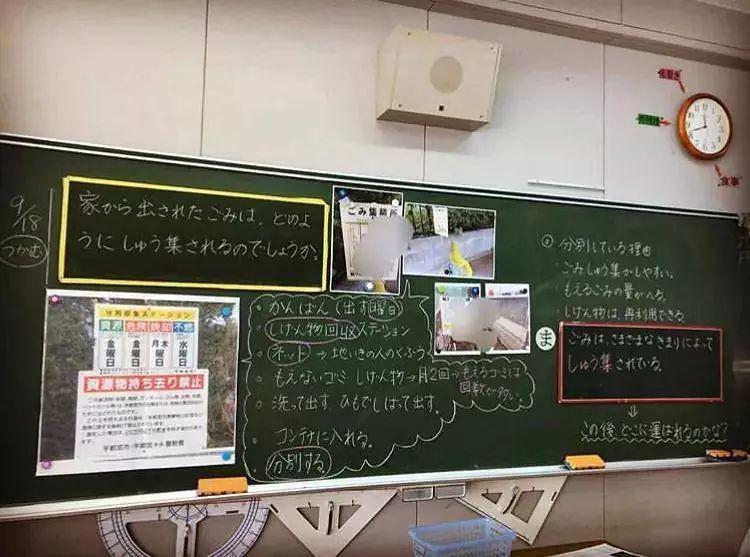 9/18
つかむ
家から出されたごみは、どのよ
うにしゅう集されるのでしょうか。
ごみ集積所
分別収集ステーション
資源 危険 焼却 不燃
金曜日 金曜日 月木曜日 水曜日
資源物持ち去り禁止
・かんばん（出す曜日）
・しげん物回収ステーション
・ネット→地いきの人のくふう
・もえないゴミ しげん物→月2回→もえるゴミは
回数が多い。
・洗って出す ひもでしばって出す。
・コンテナに入れる。
・分別する。
分別している理由
・ごみしゅう集がしやすい。
・もえるごみの量がへる。
・しげん物は、再利用できる。
ま
ごみは、さまざまなきまりによって
しゅう集されている。
⇓
この後どこに運ばれるのかな?